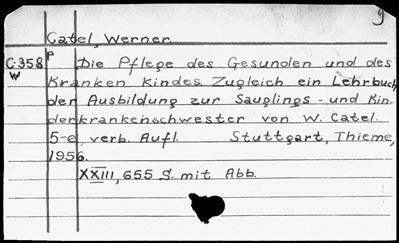 9
Catel, Werner.
C.358 P Die Pflege des Gesunden und des
W Kranken Kindes. Zugleich ein Lehrbuch
der Ausbildung zur Säuglings- und Kin-
derkrankenschwester von W. Catel.
5-e, verb. Aufl. Stuttgart, Thieme,
1956.
XXIII, 655 S. mit Abb.